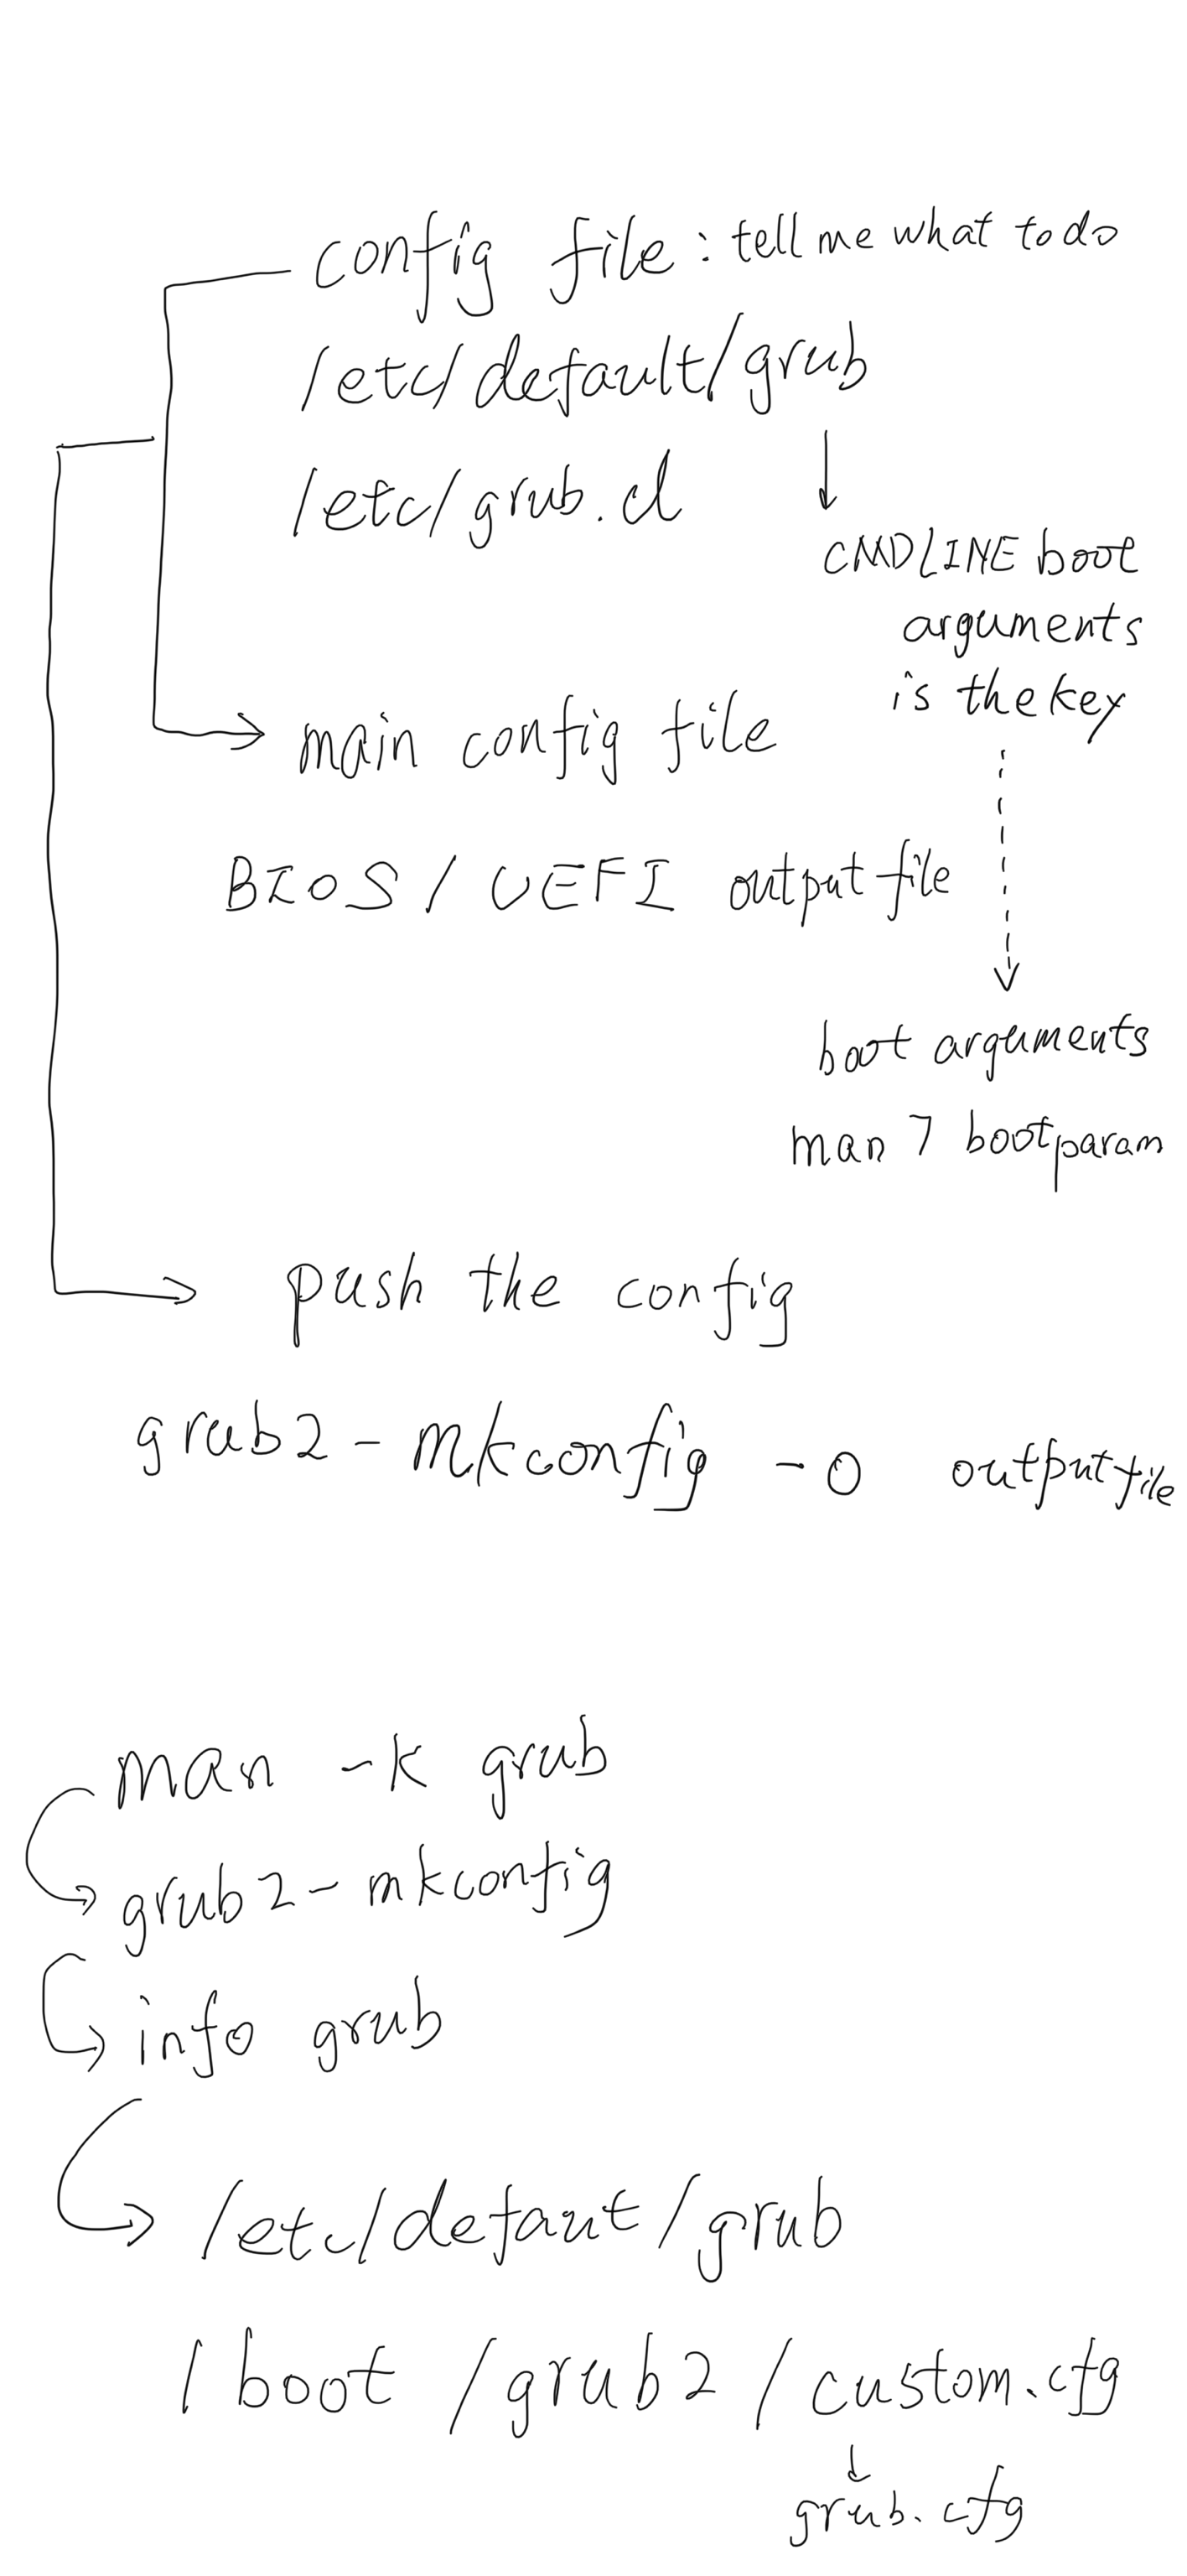 config file : tell me what to do
/etc/default/grub
/etc/grub.d
CMDLINE boot
arguments
is the key
main config file
BIOS / UEFI output file
boot arguments
man 7 bootparam
push the config
grub2 - mkconfig - o output file
man -k grub
grub2 - mkconfig
info grub
/etc/defaut/grub
/ boot / grub2 / custom.cfg
grub.cfg